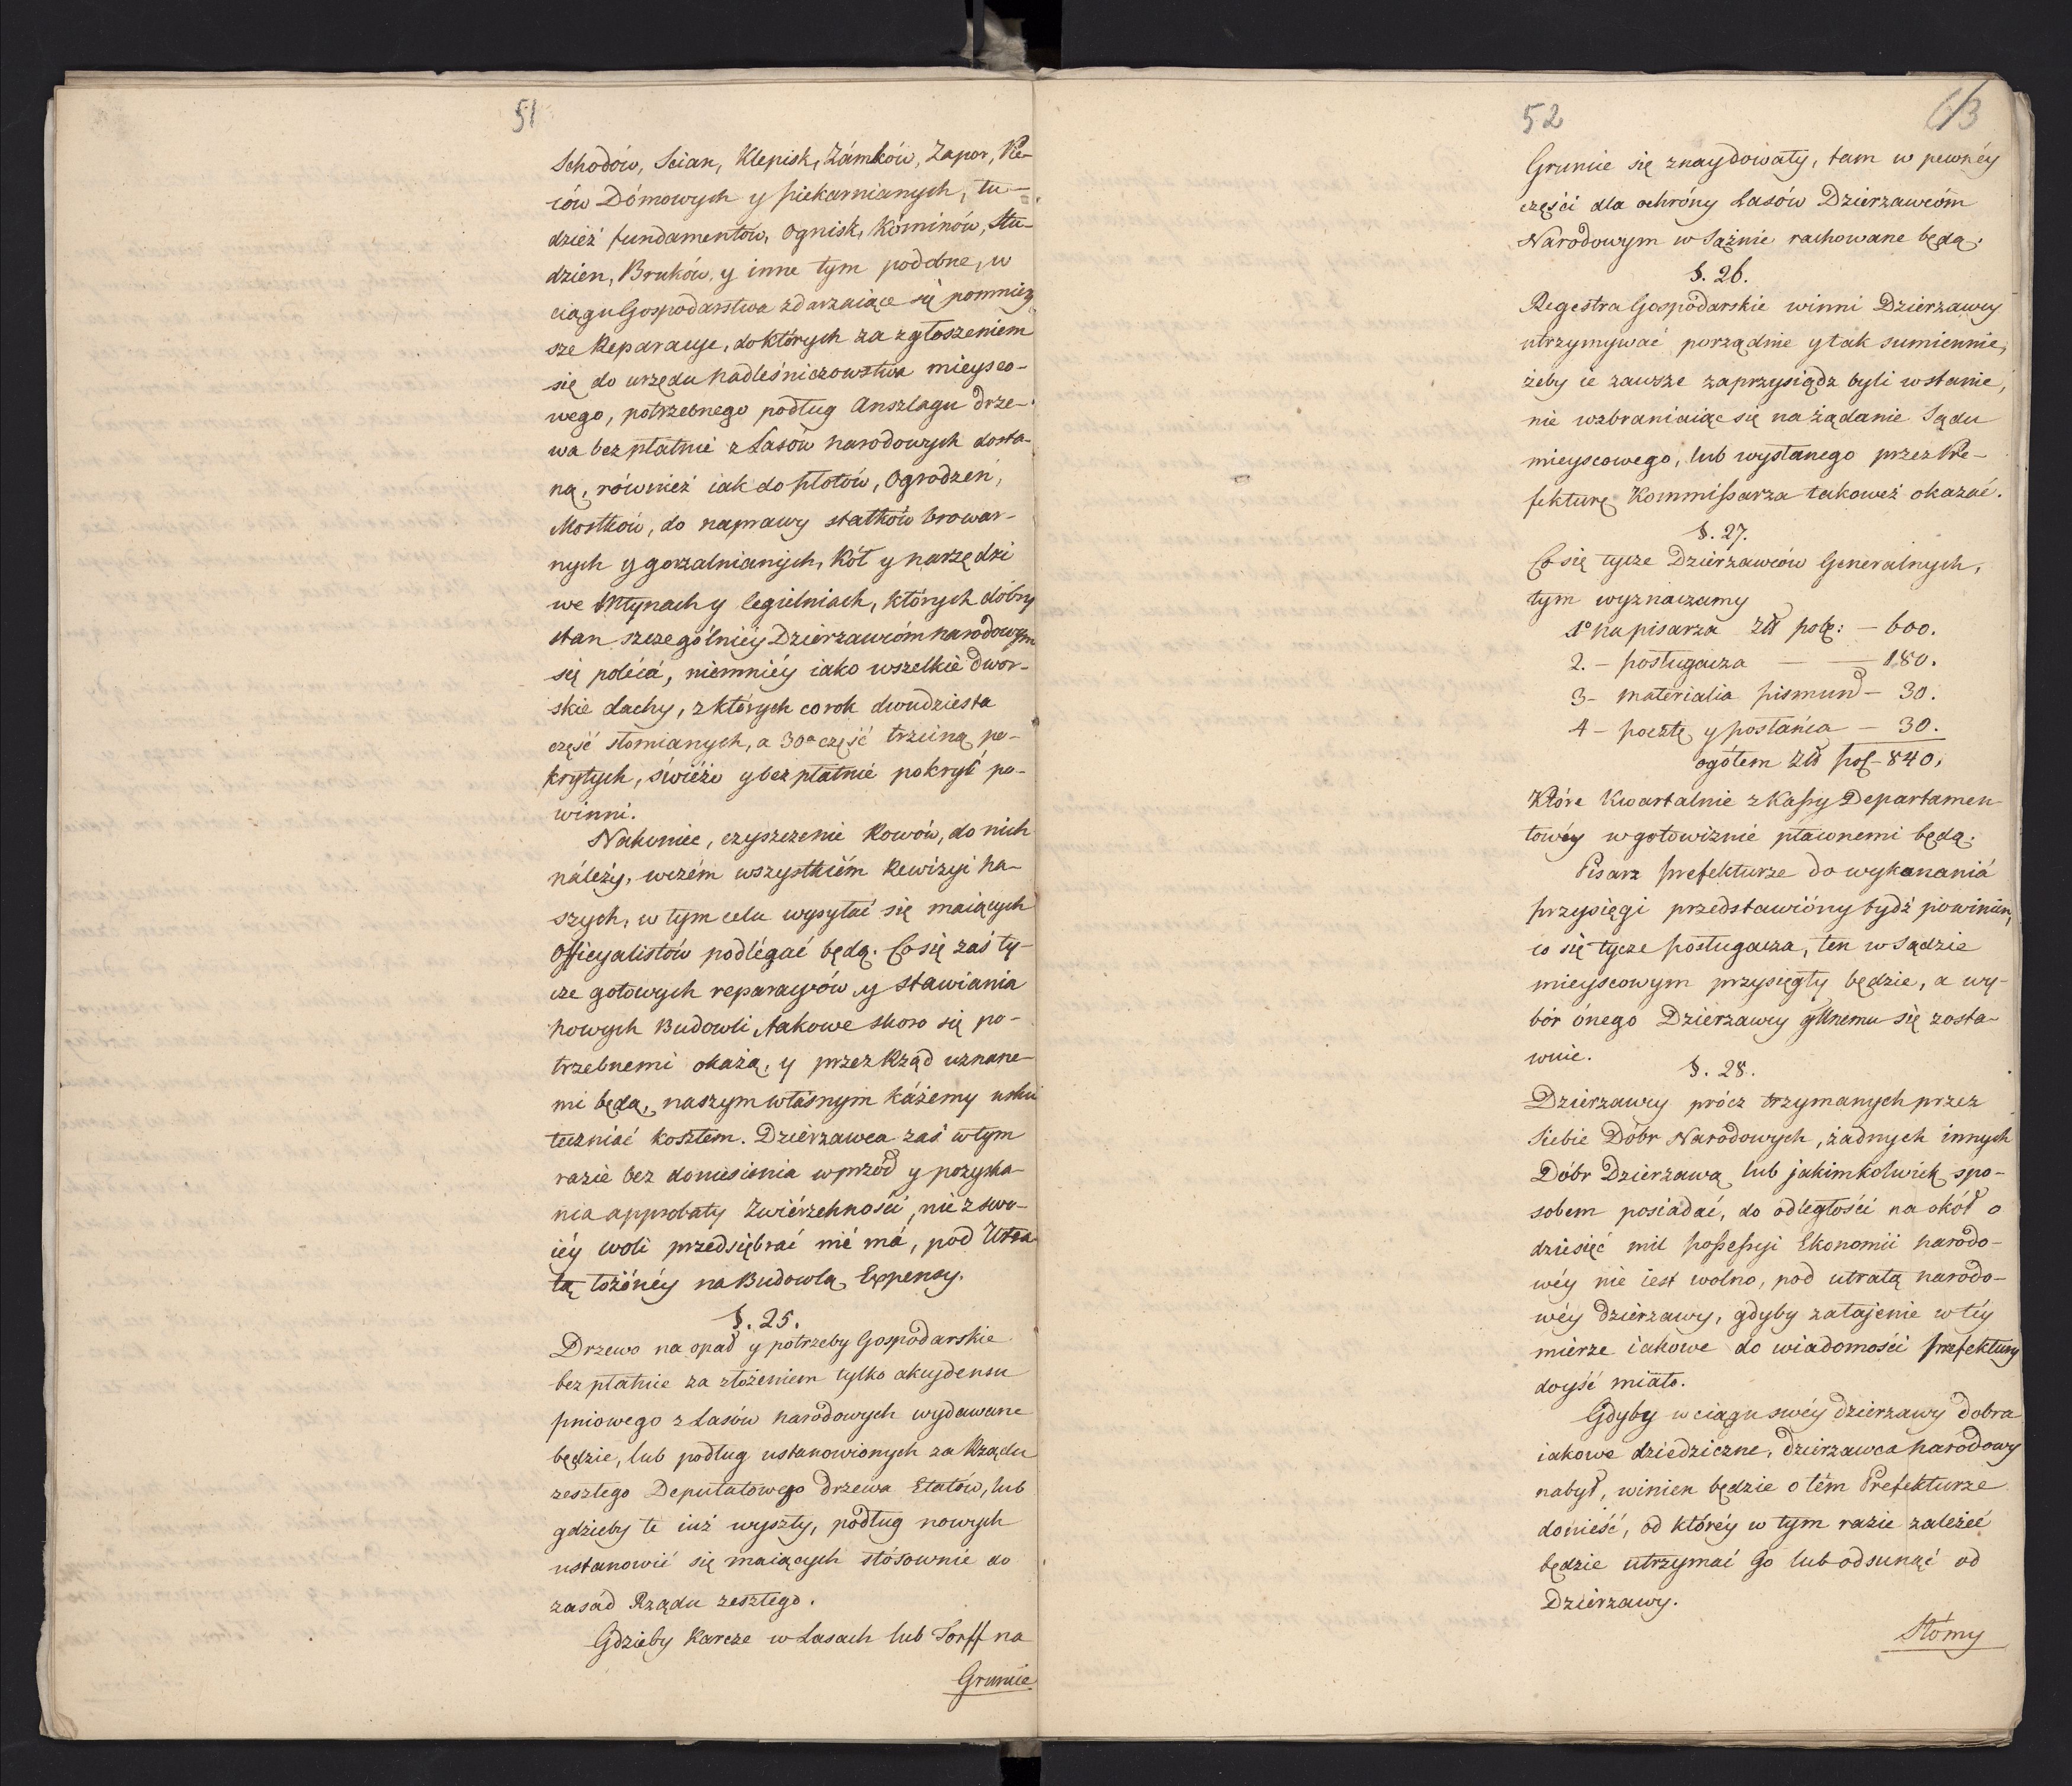 51
Schodów, Scian, Klepisk, Zámków, Zapor, Pie-
ców Dómowych y piekarnianych, tu-
dzież fundamentów, Ognisk, Kóminów, Stu-
dzien, Bruków, y inne tym podobne, w
ciągu Gospodarstwa zdarzaiące się pomniey
sze Reparacye, do których za zgłoszeniem
się do urzędu nadleśniczowstwa mieysco-
wego, potrzebnego podług Anszlagu drze-
wa bezpłatnie z Lasów narodowych dosta-
ną, również iak do płotów, Ogrodzeń,
Mostków, do naprawy statków browar-
nych y gorzalnianych, Kół y narzędzi
we Młynach y Cegielniach, których dobry
stan szczególniéy Dzierzawcóm narodowym
się poléca, niemniéy iako wszelkie dwor-
skie dachy, z których corok dwudziesta
część słomianych, a 30a część trzciną po-
krytych, świéżo y bezpłatnie pokryć po-
winni.
Nakoniec, czyszczenie Rowów, do nich
náleży, wczém wszystkiém Rewizyi na-
szych, w tym celu wysyłać się maiących
Officyalistów podlégać będą. Co się zaś ty-
cze gotowych reparacyów y stawiania
nowych Budowli, takowe skoro się po-
trzebnemi okażą, y przez Rząd uznane-
mi będą, naszym własnym káżemy usku
teczniać kosztem. Dzierzawca zaś w tym
razie bez doniesienia wprzód y pozyska-
nia approbaty Zwiérzchności, nic z swo-
iéy woli przedsiębrać nié má, pod Utra
tą łożónéy na Budowlą Expensy.
§. 25.
Drzewo na opał y potrzeby Gospodarskie
bezpłatnie za złożeniem tylko akcydensu
pniowego z Lasów narodowych wydawane
będzie, lub podług ustanowionych za Rządu
zeszłego Deputatowego drzewa Etatów, lub
gdzieby te iuż wyszły, podług nowych
ustanowić się maiących stósownie do
zasad Rządu zeszłego.
Gdzieby Karcze w Lasach lub Torff na
Gruncie
52
63
Gruncie się znaydowały, tam w pewnéy
części dla ochróny Lasów Dzierzawcóm
Narodowym w Sążnie rachowane będą.
§. 26.
Regestra Gospodarskie winni Dzierzawcy
utrzymywać porządnie y tak sumiennie,
żeby ie zawsze zaprzysiądz byli wstanie,
nie wzbraniaiąc się na żądanie Sądu
mieyscowego, lub wysłanego przez Pre-
fekturę Kommissarza takoweż okazać.
§. 27.
Co się tycze Dzierzawców Generalnych,
tym wyznaczamy
1º na pisarza Złł pols: – 600.
2. – posługacza – – 180.
3 – materialia pismund – 30.
4 – pocztę y posłańca – 30.
ogółem Złł pol – 840,
Które Kwartalnie z Kassy Departamen
towéy w gotowiznie płaconemi będą.
Pisarz prefekturze do wykonania
przysięgi przedstawióny bydź powinien,
co się tycze posługacza, ten w Sądzie
mieyscowym przysięgły będzie, a wy-
bór ónego Dzierzawcy gllnemu się zosta-
wuie.
§. 28.
Dzierzawcy prócz trzymanych przez
siebie Dóbr Narodowych, żadnych innych
Dóbr Dzierzawą lub jakimkolwiek spo-
sobem posiadać, do odległości na okół o
dziesięć mil possessyi Ekonomii narodo-
wéy nie iest wolno, pod utratą narodo-
wéy dzierzawy, gdyby zatajenie w téy
mierze iakowe do wiadomości prefektury
doyść miało.
Gdyby w ciągu swéy dzierzawy dobra
iakowe dziedziczne, dzierzawca narodowy
nabył, winien będzie o tém Prefekturze
donieść, od któréy w tym razie zależeć
będzie utrzymać Go lub odsunąć od
Dzierzawy.
Słómy